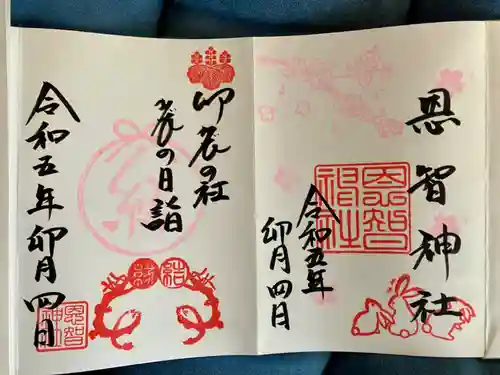 恩智神社
恩智神社
令和五年
卯月四日
卯辰の社
辰の日詣
令和五年卯月四日
恩智神社